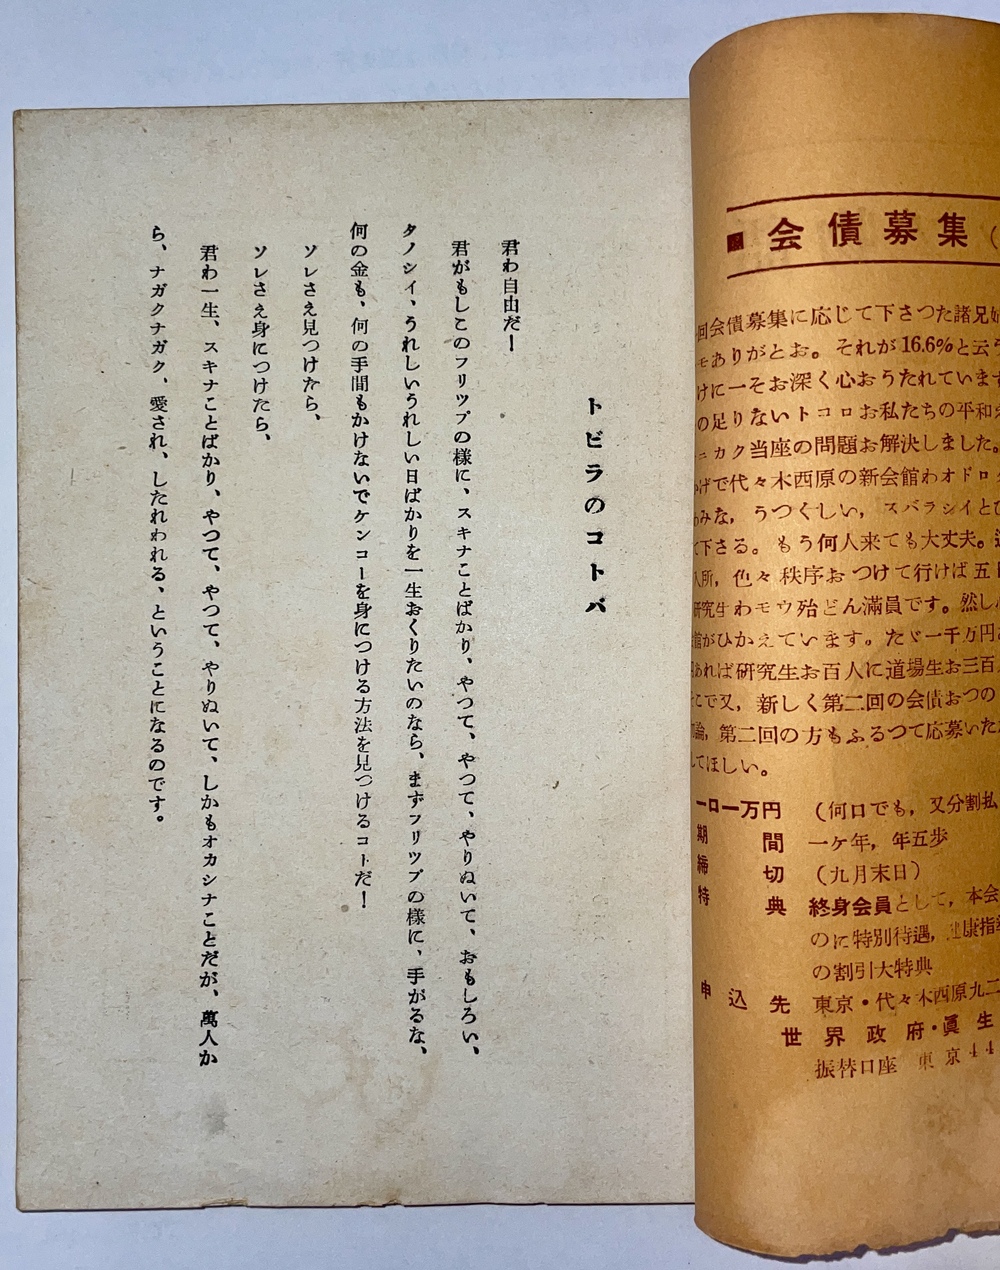 ■ 会債募集（
回会債募集に応じて下さつた諸兄
モありがとお。それが16.6%と云
けに一そお深く心おうたれています
の足りないトコロお私たちの平和
ニカク当座の問題お解決しました。
げで代々木西原の新会館わオドロ
みな，うつくしい，スバラシイと
下さる。もう何人来ても大丈夫。
入所，色々秩序おつけて行けば五
研究生わモウ殆どん満員です。然し
館がひかえています。たゞ一千万円
あれば研究生お百人に道場生お三百
こで又，新しく第二回の会債おつの
論，第二回の方もふるつて応募いた
してほしい。
一口一万円　（何口でも，又分割払
期　　間　一ヶ年，年五歩
締　　切　（九月末日）
特　　典　終身会員として，本会
のに特別待遇，健康指
の割引大特典
申　込　先　東京・代々木西原九二
世界政府・眞生
振替口座　東京44
トビラのコトバ
君わ自由だ！
君がもしこのフリップの様に、スキナことばかり、やつて、やつて、やりぬいて、おもしろい、
タノシイ、うれしいうれしい日ばかりを一生おくりたいのなら、まずフリップの様に、手がるな、
何の金も、何の手間もかけないでケンコーを身につける方法を見つけるコトだ！
ソレさえ見つけたら、
ソレさえ身につけたら、
君わ一生、スキナことばかり、やつて、やつて、やりぬいて、しかもオカシナことだが、萬人か
ら、ナガクナガク、愛され、したわれる、ということになるのです。